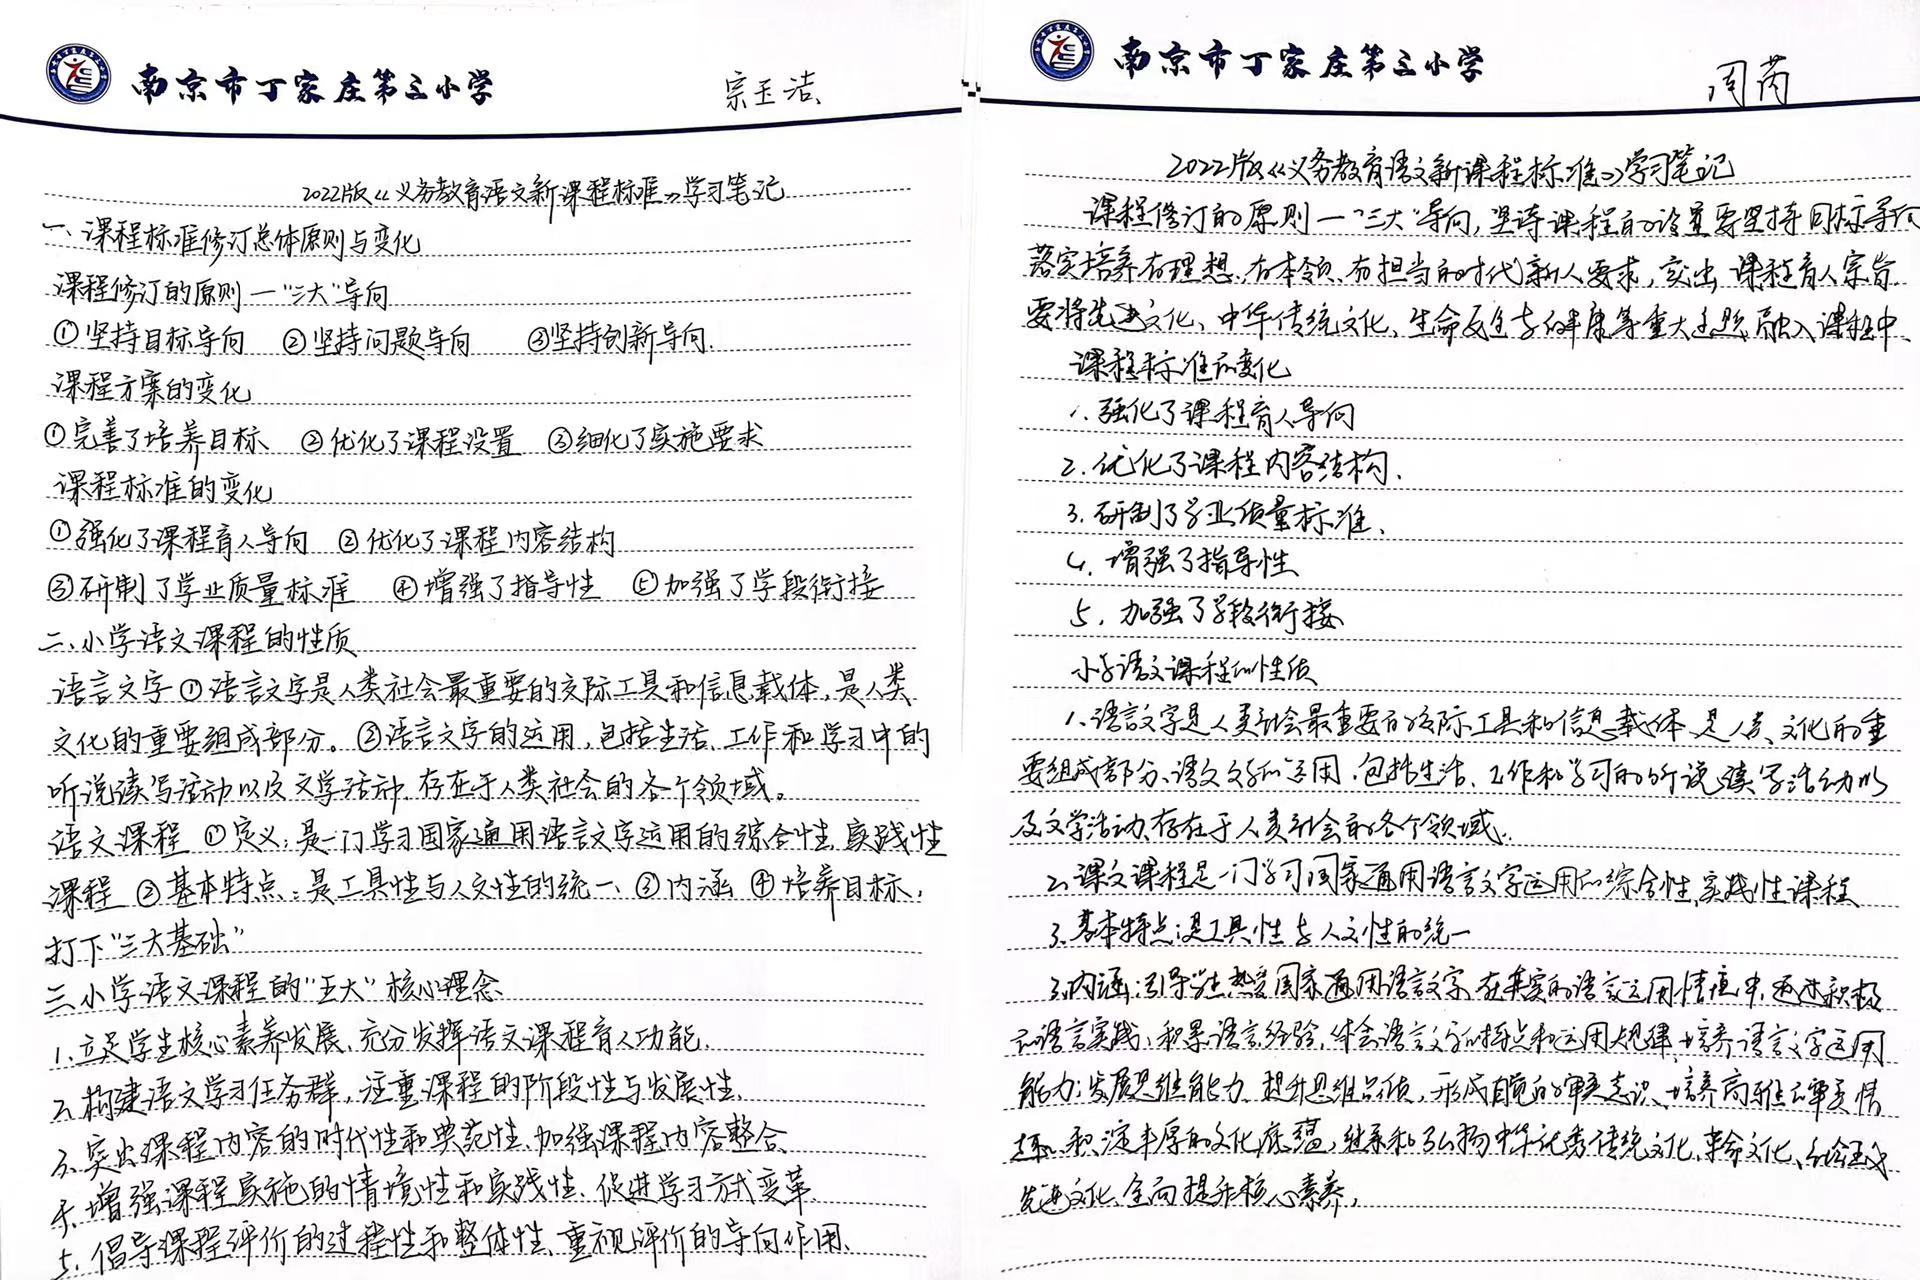 南京市丁家庄第三小学
宗玉洁
2022版《义务教育语文新课程标准》学习笔记
一、课程标准修订总体原则与变化
课程修订的原则一"三大"导向
①坚持目标导向 ②坚持问题导向 ③坚持创新导向.
课程方案的变化
①完善了培养目标 ②优化了课程设置 ③细化了实施要求
课程标准的变化
①强化了课程育人导向 ②优化了课程内容结构
③研制了学业质量标准 ④增强了指导性 ⑤加强了学段衔接
二、小学语文课程的性质
语言文字①语言文字是人类社会最重要的交际工具和信息载体,是人类
文化的重要组成部分。②语言文字的运用,包括生活、工作和学习中的
听说读写活动以及文学活动,存在于人类社会的各个领域。
语文课程 ①定义:是一门学习国家通用语言文字运用的综合性、实践性
课程 ②基本特点:是工具性与人文性的统一、③内涵 ④培养目标,
打下"三大基础"
三、小学语文课程的"五大"核心理念
1.立足学生核心素养发展,充分发挥语文课程育人功能.
2.构建语文学习任务群,注重课程的阶段性与发展性.
3.突出课程内容的时代性和典范性,加强课程内容整合
4.增强课程实施的情境性和实践性,促进学习方式变革.
5.倡导课程评价的过程性和整体性、重视评价的导向作用、
南京市丁家庄第三小学
周芮
2022版《义务教育语文新课程标准》学习笔记
课程修订的原则一"三大"导向,坚持课程的设置要坚持目标导向
落实培养有理想、有本领、有担当的时代新人要求,突出课程育人宗旨.
要将先进文化、中华传统文化、生命安全与健康等重大主题融入课程中、
课程标准的变化
1.强化了课程育人导向
2.优化了课程内容结构.
3.研制了学业质量标准、
4.增强了指导性
5.加强了学段衔接
小学语文课程的性质
1.语言文字是人类社会最重要的交际工具和信息载体、是人类文化的重
要组成部分、语文文字的运用,包括生活、工作和学习的听说读写活动以
及文学活动、存在于人类社会的各个领域.
2.课文课程是一门学习国家通用语言文字运用的综合性、实践性课程
3.基本特点:是工具性与人文性的统一
3.内涵:引导学生热爱国家通用语言文字,在真实的语言运用情境中,通过积极
的语言实践,积累语言经验,体会语言文字的特点和运用规律,培养语言文字运用
能力;发展思维能力,提升思维品质,形成自觉的审美意识,培养高雅的审美情
趣、积淀丰厚的文化底蕴,继承和弘扬中华优秀传统文化、革命文化、社会主义
先进文化,全面提升核心素养,